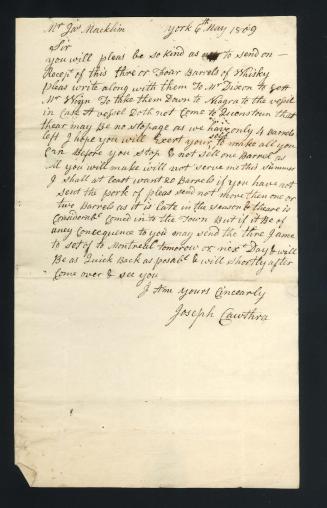 Mr Jas Macklim York 4th May 1809
Sir
you will pleas be so kind as to send on
Recept of this thre or Fhoar Barrels of Whisky
pleas write along with them To Mr Dixon to gett
Mr Wrign To take them Down to Niagra to the vesel
in Case A vesel Doth not Come to Queonstoun that
thear may Be no stopage as we have only 4 Barrels
left I hope you will Exert your self to make all you
Can Before you Stop & not sell one Barrel as
all you will make will not serve me this summer
I shall at least want 20 Barrels if you have not
sent the pork of pleas send not more then one or
two Barrels as it is late in the season & theare is
Considerabl Comed in to the Town But if it Be of
aney Concequence to you may send the thre I ame
to set of to Montreal tomorow or nex Day & will
Be as Quick Back as posabl & will shortly after
Come over & see you
I Am yours Cincearly
Joseph Cawthra